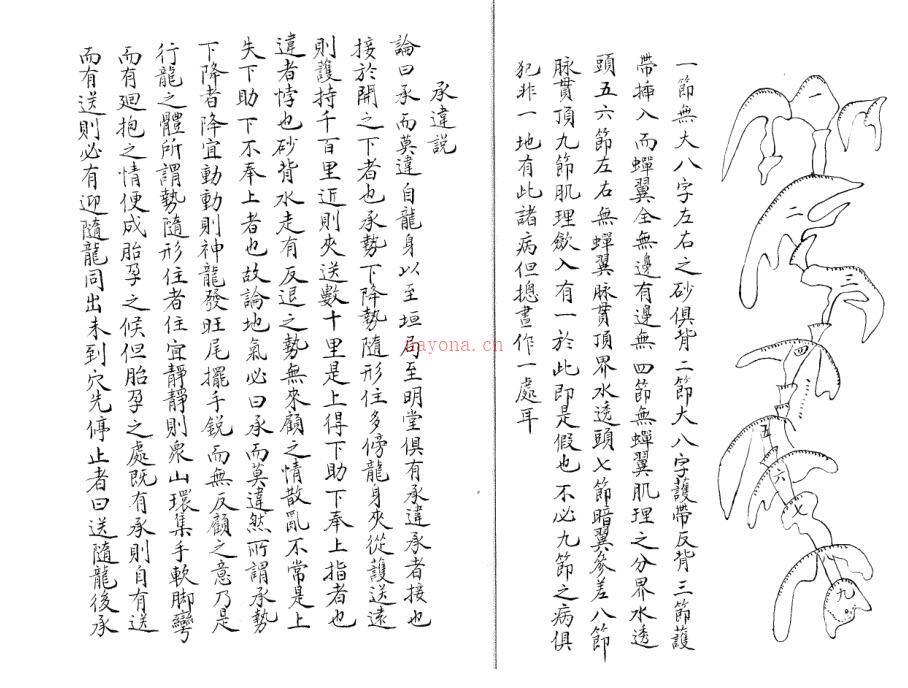 一
二
三
四
五
六
七
九
一節無大八字左右之砂俱背二節大八字護帶反背三節護
帶揷入而蟬翼全無邊有邊無四節無蟬翼肌理之分界水透
頭五六節左右無蟬翼脉貫頂界水透頭七節暗翼參差八節
脉貫頂九節肌理飲入有一於此即是假也不必九節之病俱
犯非一地有此諸病但摠畫作一處耳
承違説
論曰承而莫違自龍身以至垣局至明堂俱有承違承者接也
接於開之下者也承勢下降勢隨形住多傍龍身夾從護送遠
則護持千百里近則夾送數十里是上得下助下奉上指者也
違者悖也砂背水走有反退之勢無來顧之情散亂不常是上
失下助下不奉上者也故論地氣必曰承而莫違然所謂承勢
下降者降宜動動則神龍發旺尾擺手鋭而無反顧之意乃是
行龍之體所謂勢隨形住者住宜靜靜則衆山環集手軟脚彎
而有廻抱之情便成胎孕之候但胎孕之處既有承則自有送
而有送則必有迎隨龍同出未到穴先停止者曰送隨龍後承
nayona.ch